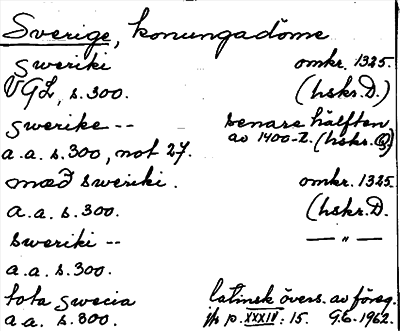 Sverige, konungadöme
sweriki omkr. 1325.
VGL, s. 300. (hskr. D.)
swerike -- senare hälften
av 1400-t. (hskr. G.)
a.a. s. 300, not 27.
mæð sweriki. omkr. 1325
a.a. s. 300. (hskr. D.
sweriki -- — " —
a.a. s. 300.
tota swecia latinsk övers. av föreg.
a.a. s. 300. jfr p. XXXIV: 15. G.G. 1962.